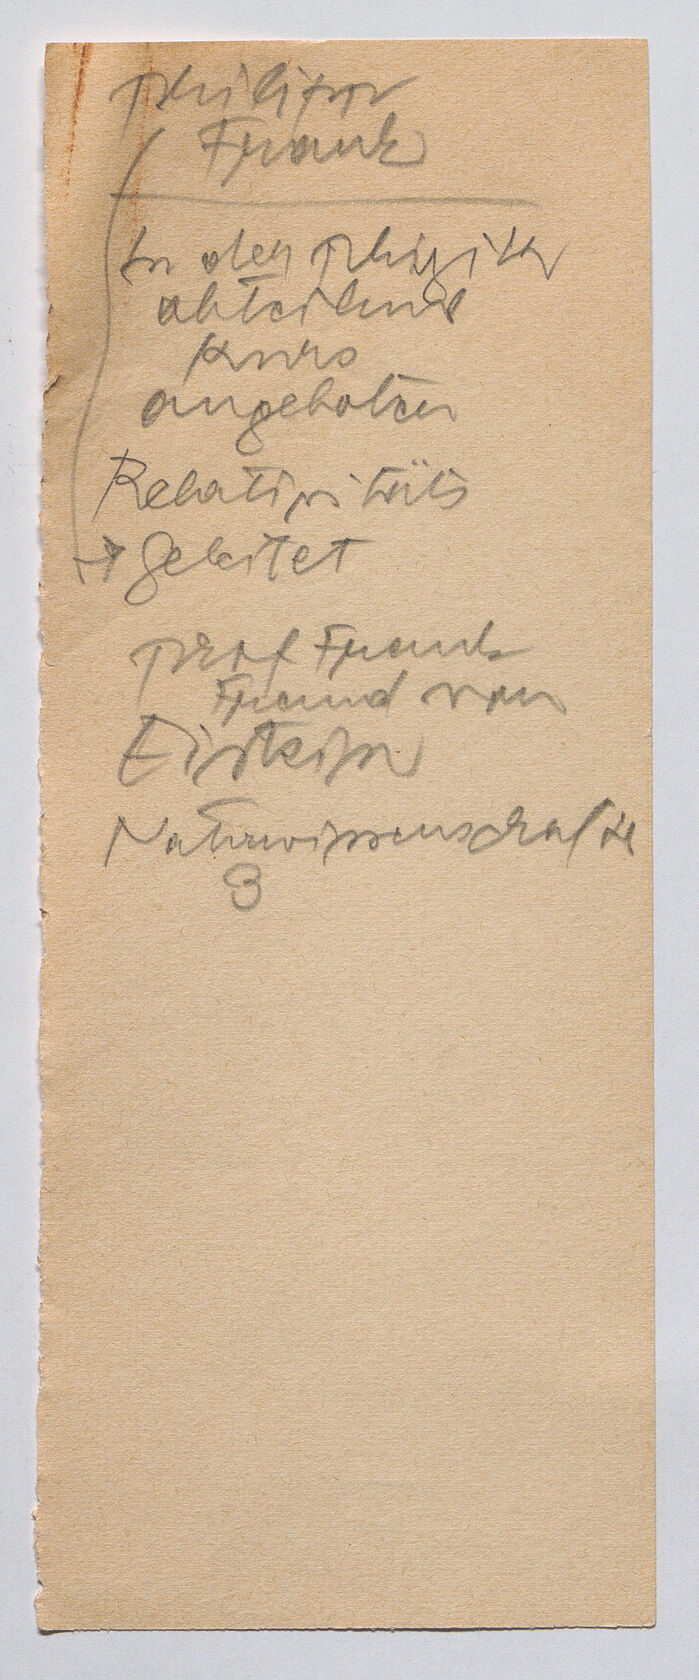 Philipp
Frank
In der Physik
abteilung
Kurs
angeboten
Relativitäts
→ geleitet
Prof Frank
Freund von
Einstein
Naturwissenschaften
3